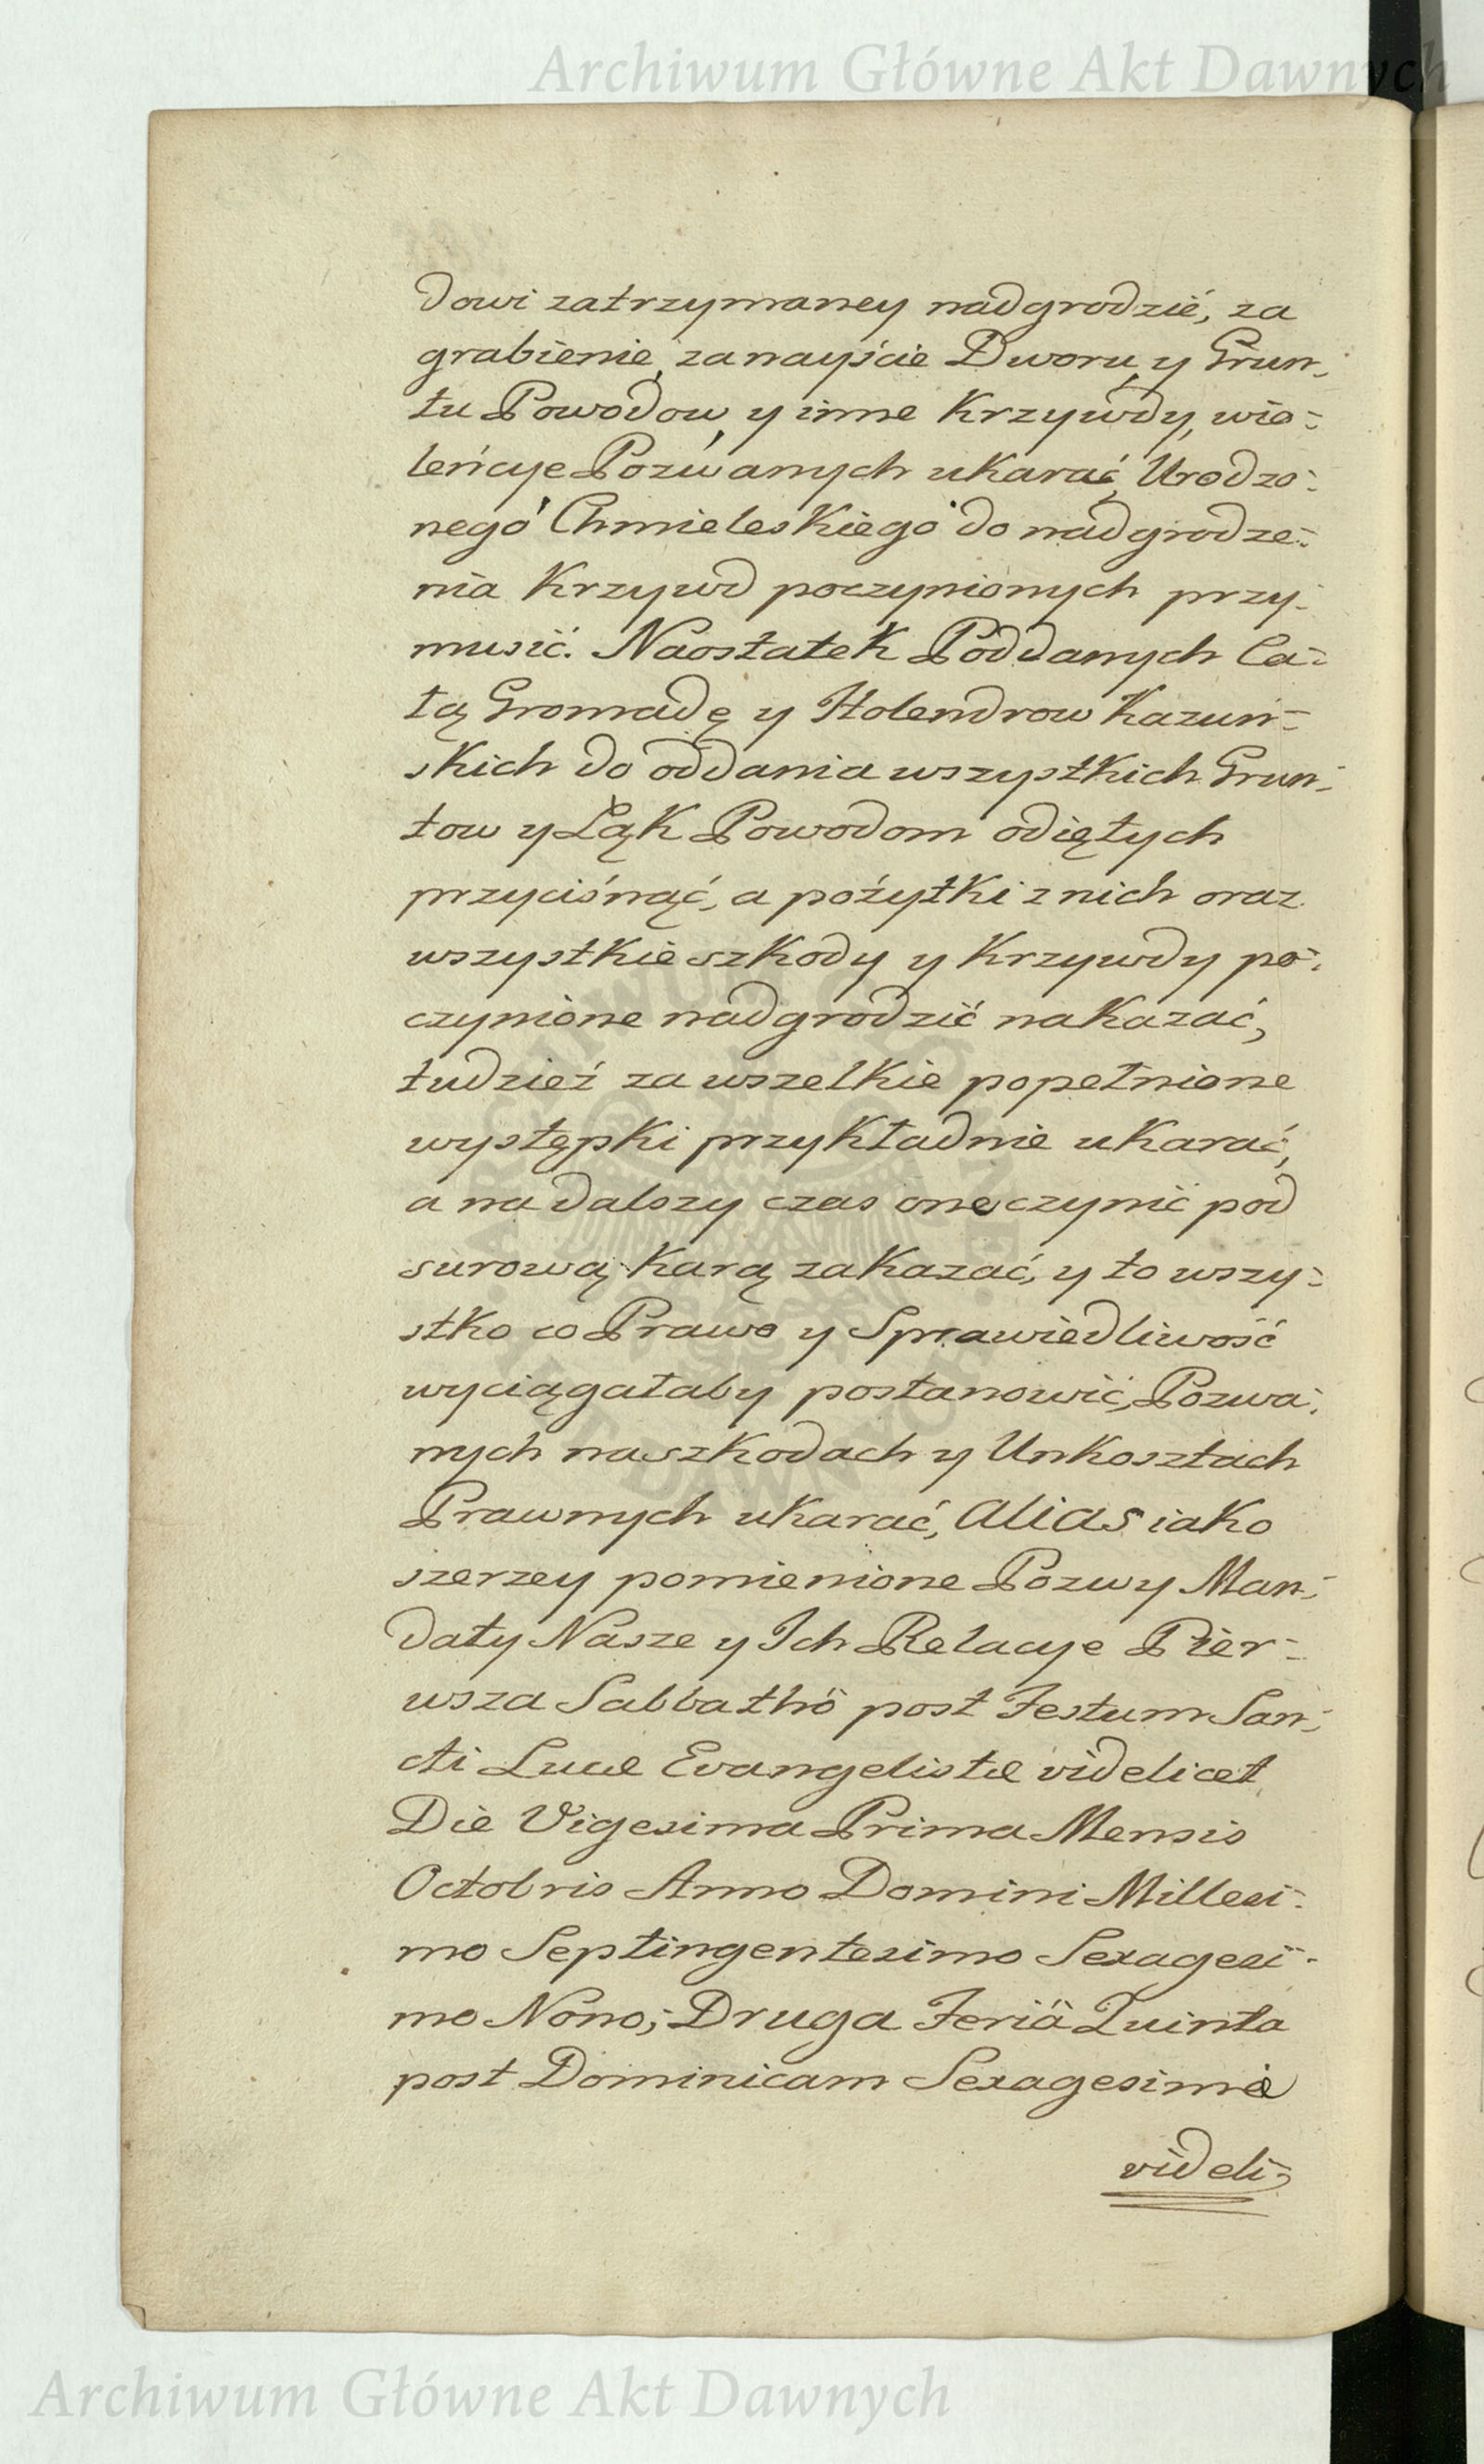 Archiwum Główne Akt Dawnych
dowi zatrzymaney nadgrodzić, za
grabienie, za nayście Dworu, y Grun-
tu Powodow, y inne Krzywdy, wio-
leńcye Pozwanych ukarać, Urodzo-
nego Chmieleskiego do nadgrodze-
nia Krzywd poczynionych przy-
musić. Naostatek Poddanych Ca-
łą Gromadę y Holendrow Kazuń-
skich do oddania wszystkich Grun-
tow y Łąk Powodom odiętych
przyciśnąć, a pożytki z nich oraz
wszystkie szkody y Krzywdy po-
czynione nadgrodzić nakazać,
tudzież za wszelkie popełnione
występki przykładnie ukarać,
a na dalszy czas one czynić pod
surową karą zakazać, y to wszy-
stko co Prawo y Sprawiedliwość
wyciągałaby postanowić, Pozwa-
nych na szkodach y Unkosztach
Prawnych ukarać, alias iako
szerzey pomienione Pozwy Man-
daty Nasze y Ich Relacye Pier-
wsza Sabbathô post Festum San-
cti Lucæ Evangelistæ videlicet
Die Vigesima Prima Mensis
Octobris Anno Domini Millesi-
mo Septingentesimo Sexagesi-
mo Nono; Druga Feriâ Quinta
post Dominicam Sexagesimæ
videli-
ARCHIWUM GŁÓWNE AKT DAWNYCH
Archiwum Główne Akt Dawnych